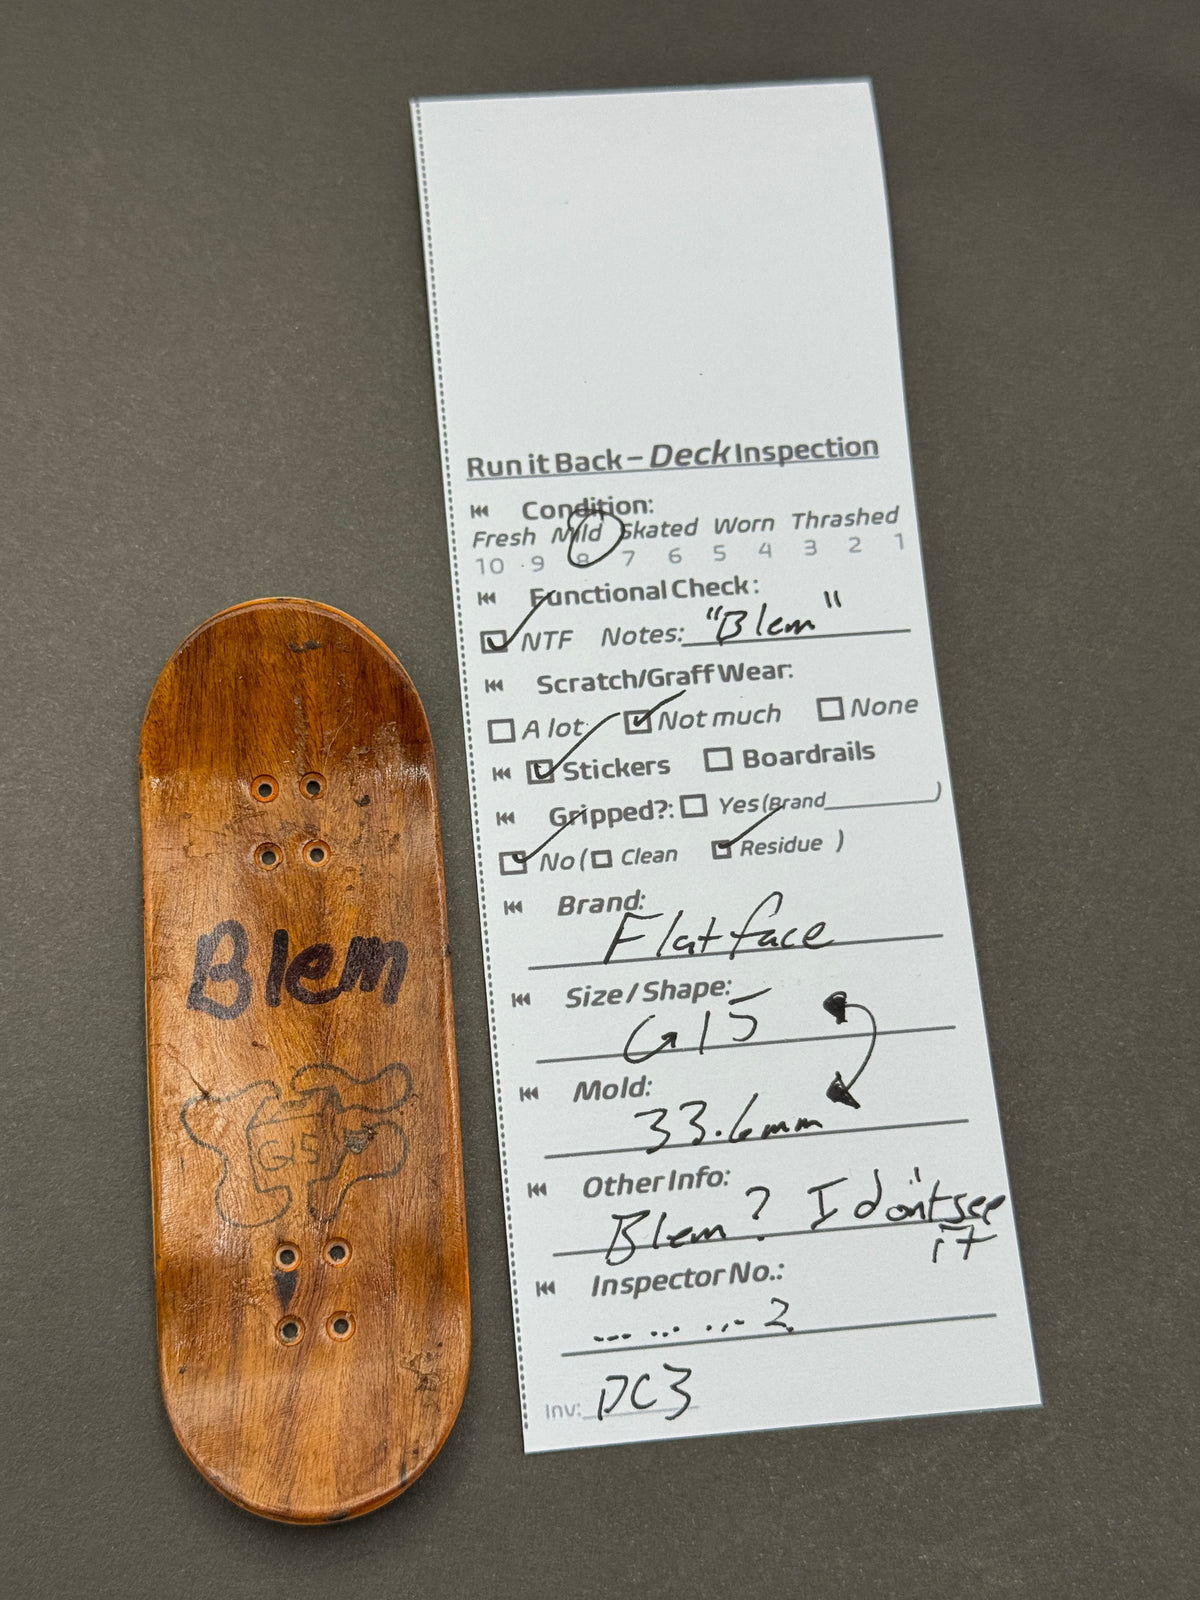 Run it Back – Deck Inspection
Condition:
Fresh Mild Skated Worn Thrashed
10 9 8 7 6 5 4 3 2 1
Functional Check:
NTF Notes: "Blem"
Scratch/Graff Wear:
A lot Not much None
Stickers Boardrails
Gripped?: Yes (Brand )
No ( Clean Residue )
Brand:
Flatface
Size / Shape:
G15
Mold:
33.6mm
Other Info:
Blem? I don't see
it
Inspector No.:
... ... ... 2
Inv: DC3
Blem